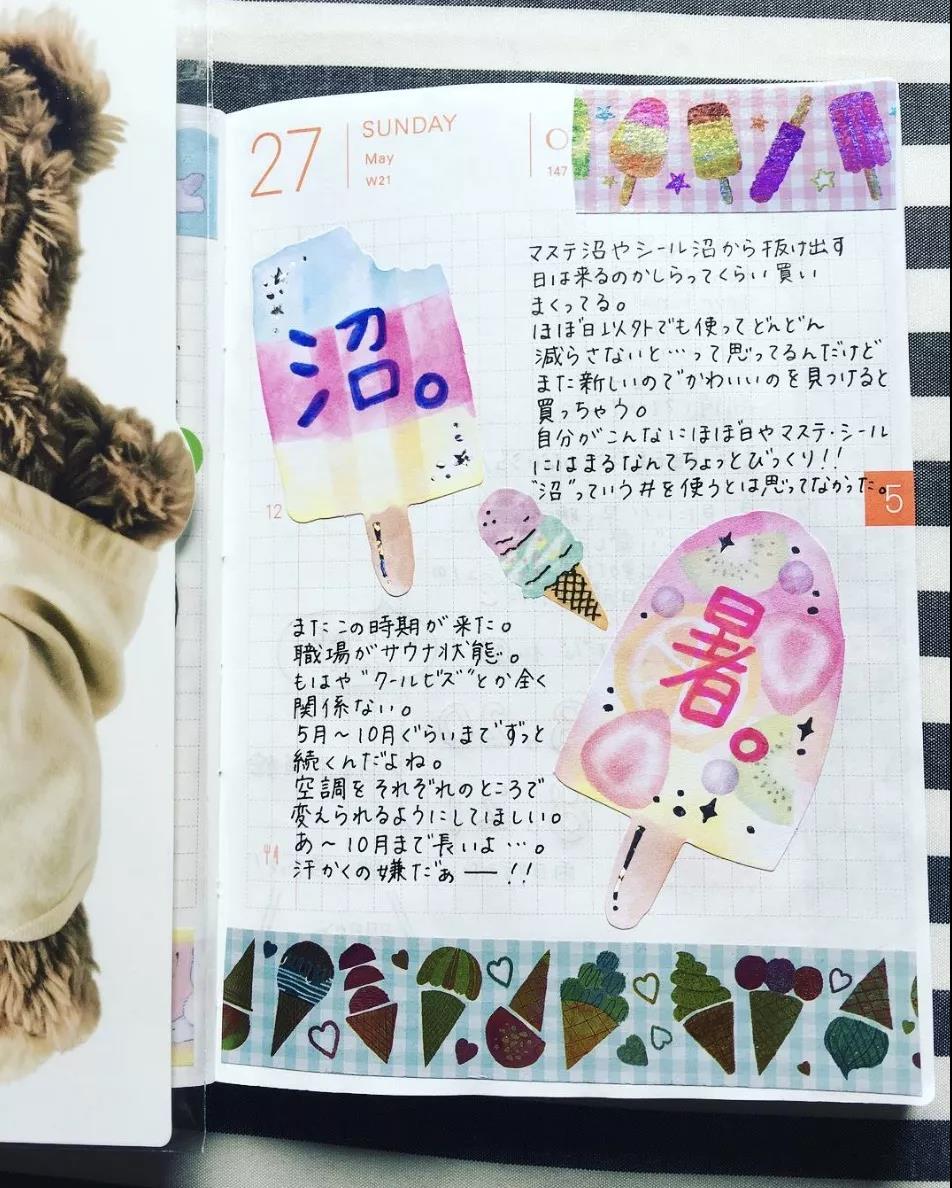 27
SUNDAY
May
W21
147
マステ沼やシール沼から抜け出す
日は来るのかしらってくらい買い
まくってる。
ほぼ日以外でも使ってどんどん
減らさないと…って思ってるんだけど
また新しいのでかわいいのを見つけると
買っちゃう。
自分がこんなにほぼ日やマステ・シール
にはまるなんてちょっとびっくり!!
"沼"っていう#を使うとは思ってなかった。
5
沼。
12
暑。
またこの時期が来た。
職場がサウナ状態。
もはや"クールビズ"とか全く
関係ない。
5月〜10月ぐらいまでずっと
続くんだよね。
空調をそれぞれのところで
変えられるようにしてほしい。
あ〜10月まで長いよ…。
汗かくの嫌だぁ──!!